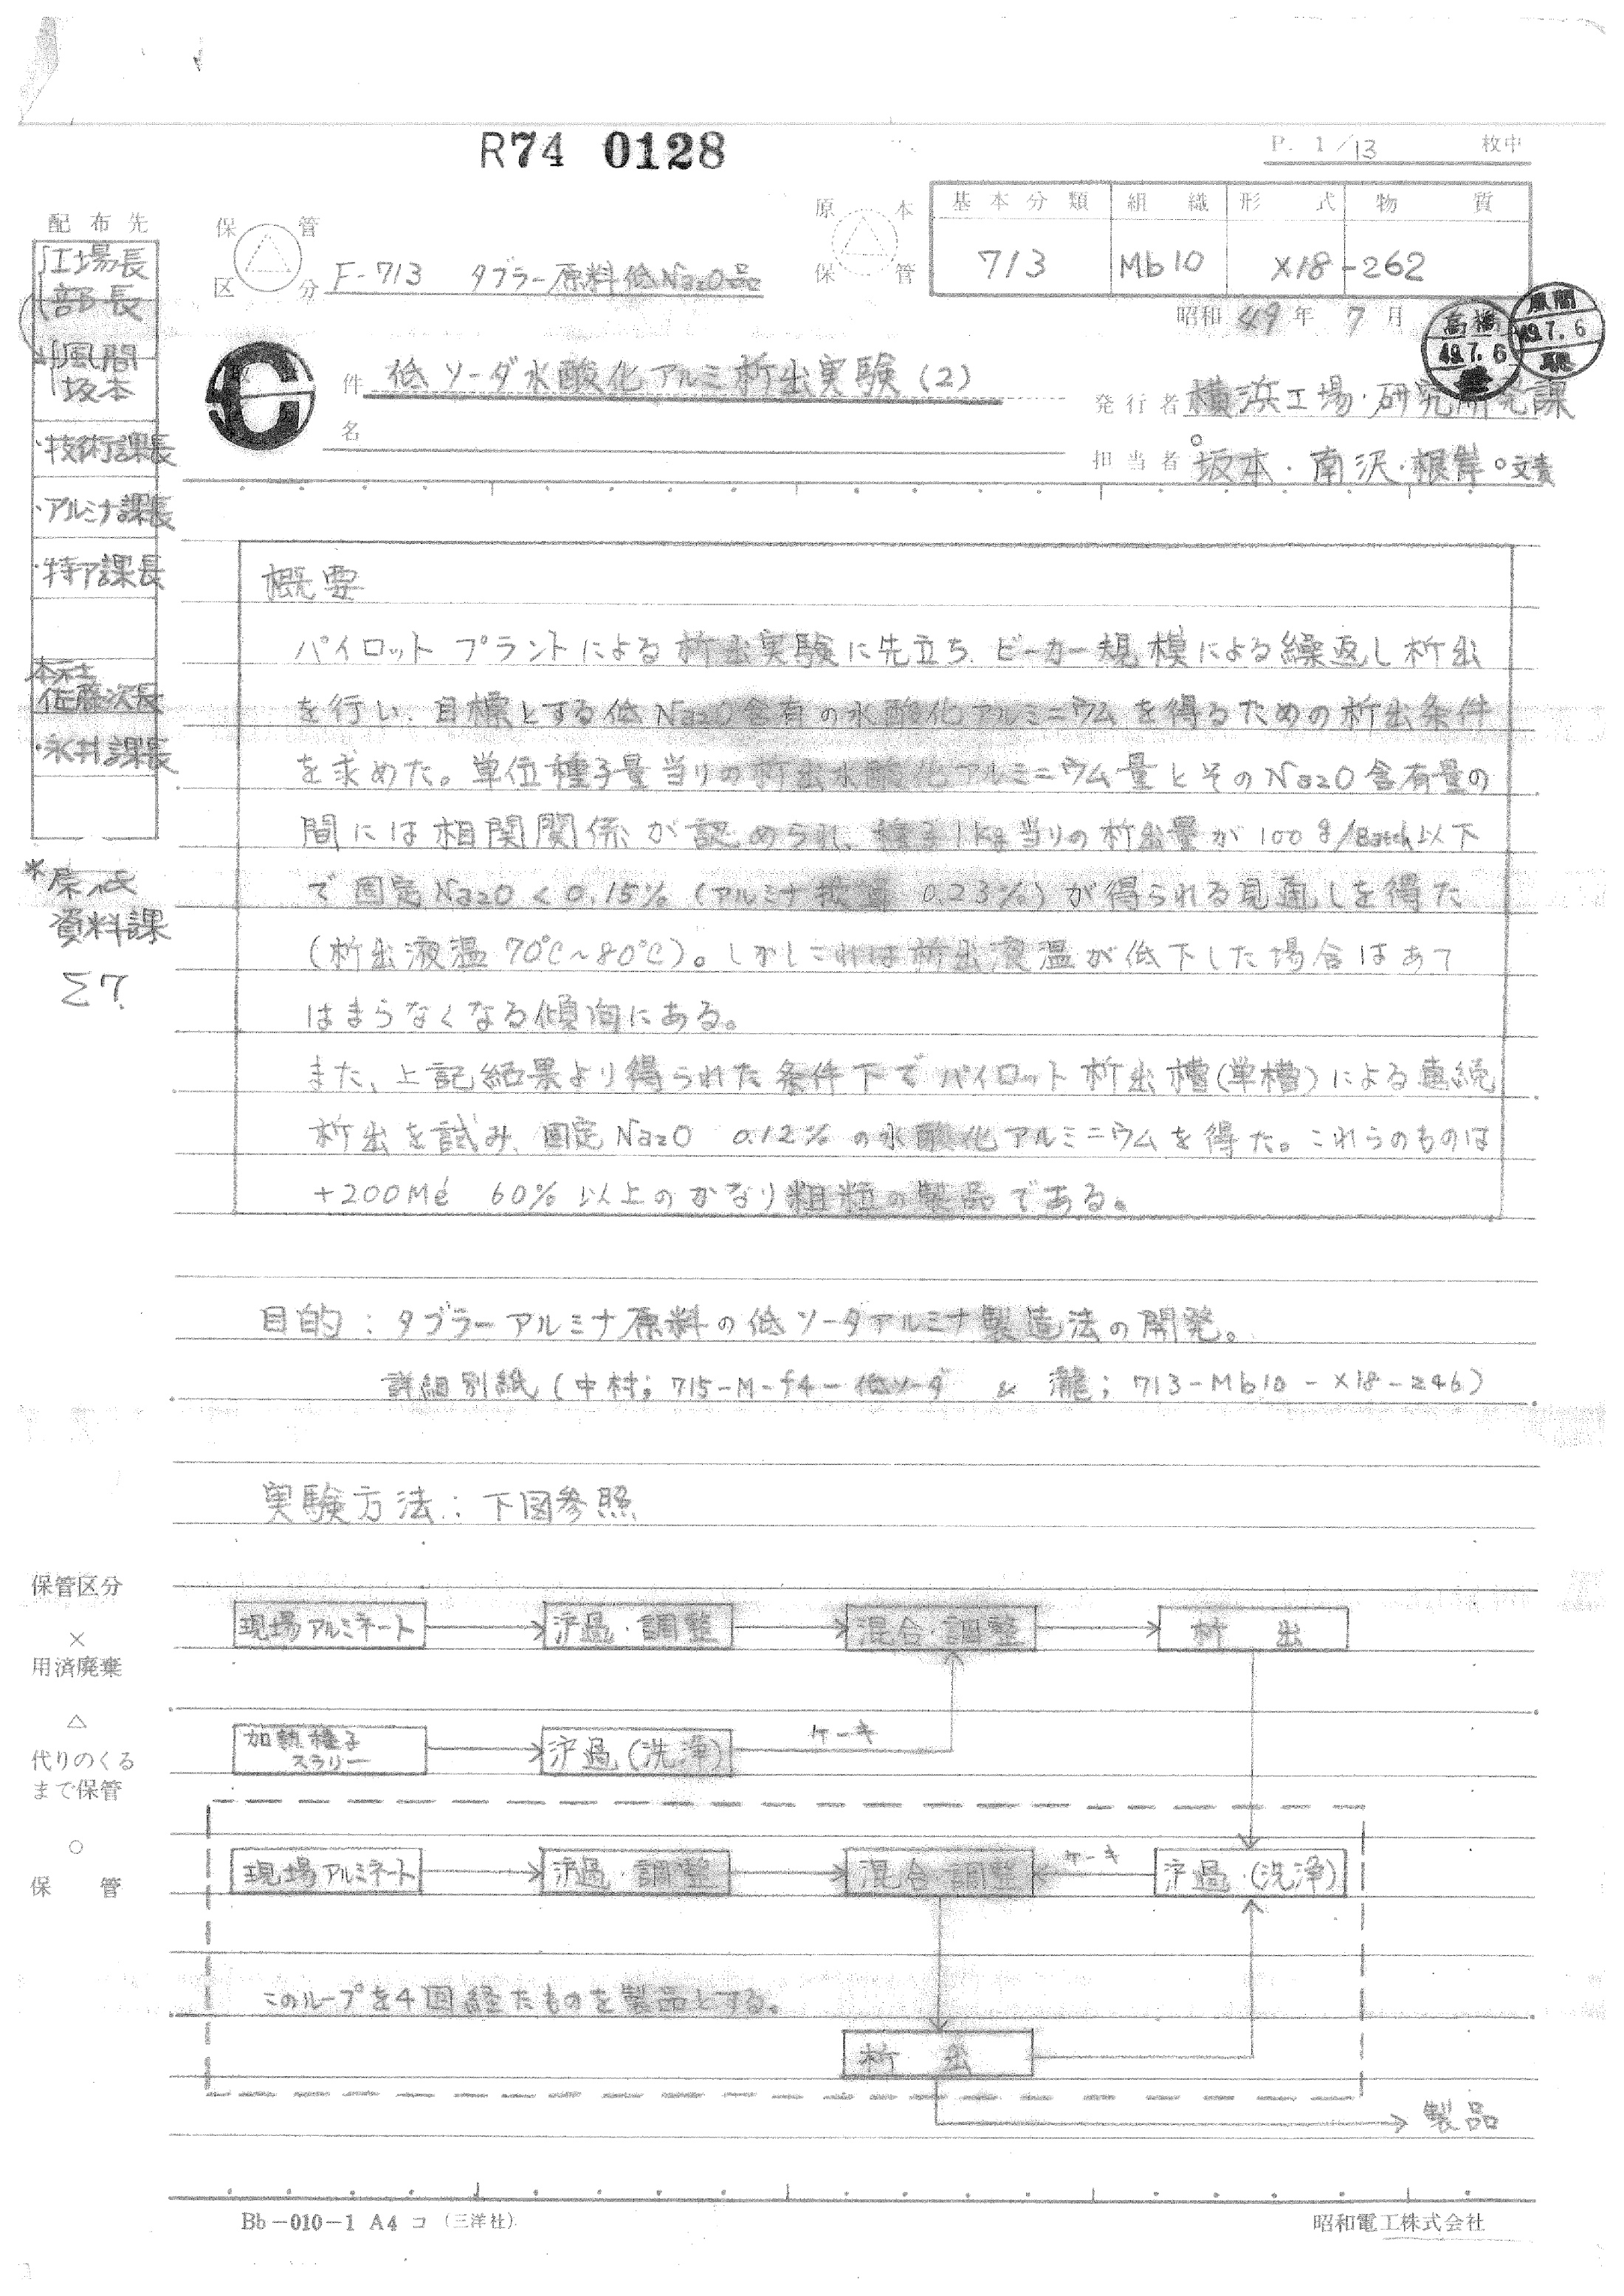 R74 0128
P. 1/13 枚中
配布先
工場長
部長
風間
坂本
・技術課長
・アルミナ課長
・特ア課長
本社
佐藤次長
・永井課長
資料課
Σ7
保管
区分 F-713 タブラー原料低Na2O品
原本
保管
基本分類 組織 形式 物質
713 Mb10 X18-262
昭和 49年 7月
高橋
49.7.6
風間
49.7.6
件名 低ソーダ水酸化アルミ析出実験(2)
発行者 横浜工場・研究所
担当者 坂本・南沢・根岸 ○文責
概要
パイロットプラントによる析出実験に先立ち、ビーカー規模による繰返し析出
を行い、目標とする低Na2O含有の水酸化アルミニウムを得るための析出条件
を求めた。単位種子量当りの析出水酸化アルミニウム量とそのNa2O含有量の
間には相関関係が認められ、種子1kg当りの析出量が100g/Batch以下
で固定Na2O<0.15%(アルミナ換算 0.23%)が得られる見通しを得た
(析出液温70℃~80℃)。しかしこれは析出液温が低下した場合はあて
はまらなくなる傾向にある。
また、上記結果より得られた条件下でパイロット析出槽(単槽)による連続
析出を試み、固定Na2O 0.12%の水酸化アルミニウムを得た。これらのものは
+200Mé 60%以上のかなり粗粒の製品である。
目的:タブラーアルミナ原料の低ソーダアルミナ製造法の開発。
詳細別紙(中村;715-M-f4-低ソーダ & 瀧;713-Mb10-X18-246)
実験方法:下図参照
保管区分
×
用済廃棄
△
代りのくる
まで保管
○
保管
現場アルミネート
沪過・調整
混合・調整
析出
加熱種子
スラリー
沪過(洗浄)
ケーキ
現場アルミネート
沪過・調整
混合・調整
ケーキ
沪過・(洗浄)
このループを4回経たものを製品とする。
析出
製品
Bb-010-1 A4 コ (三洋社)
昭和電工株式会社